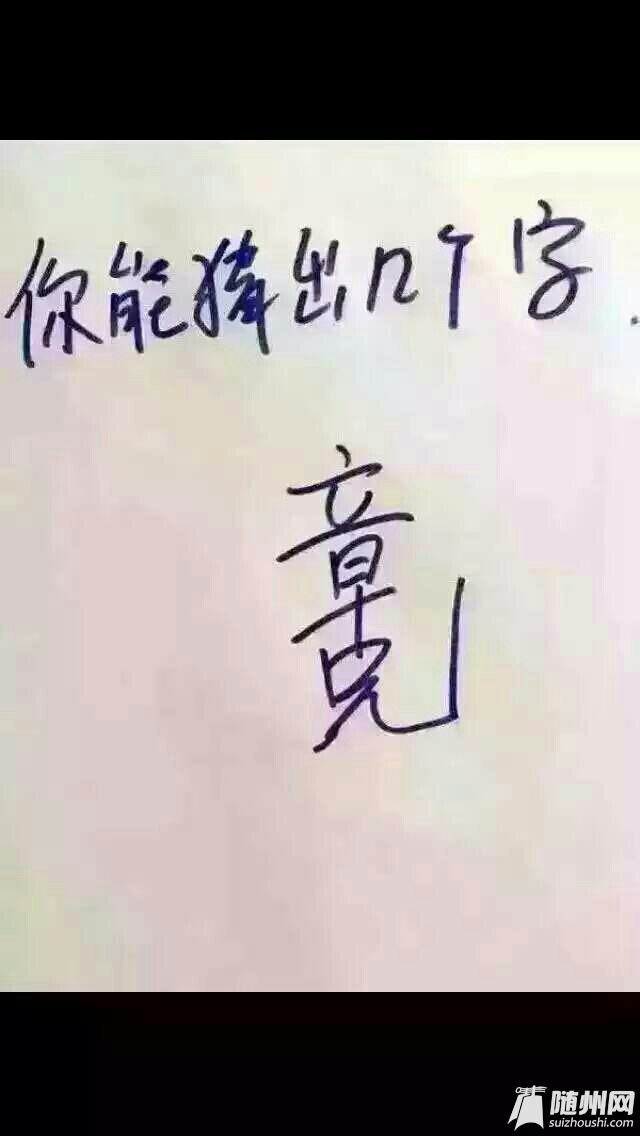 你能猜出几个字
随州网
suizhoushi.com